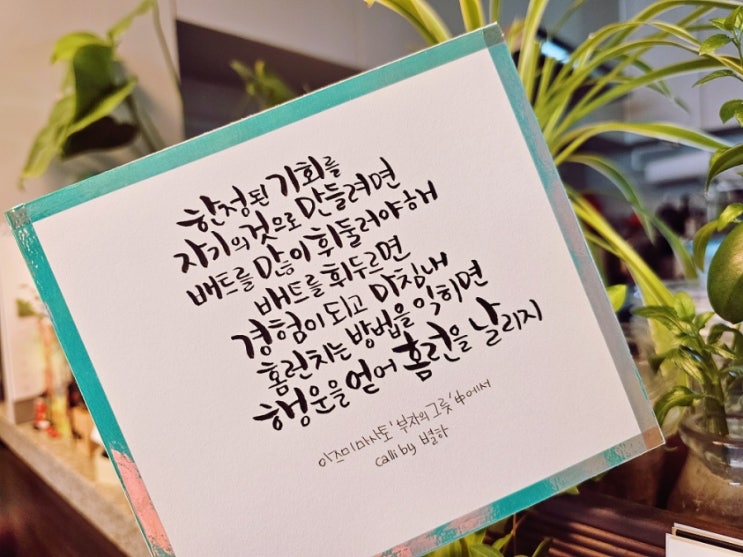 한정된 기회를
자기의 것으로 만들려면
배트를 많이 휘둘러야 해
배트를 휘두르면
경험이 되고 마침내
홈런 치는 방법을 익히면
행운을 얻어 홈런을 날리지
이즈미 마사토 '부자의 그릇' 中에서
calli by 별하